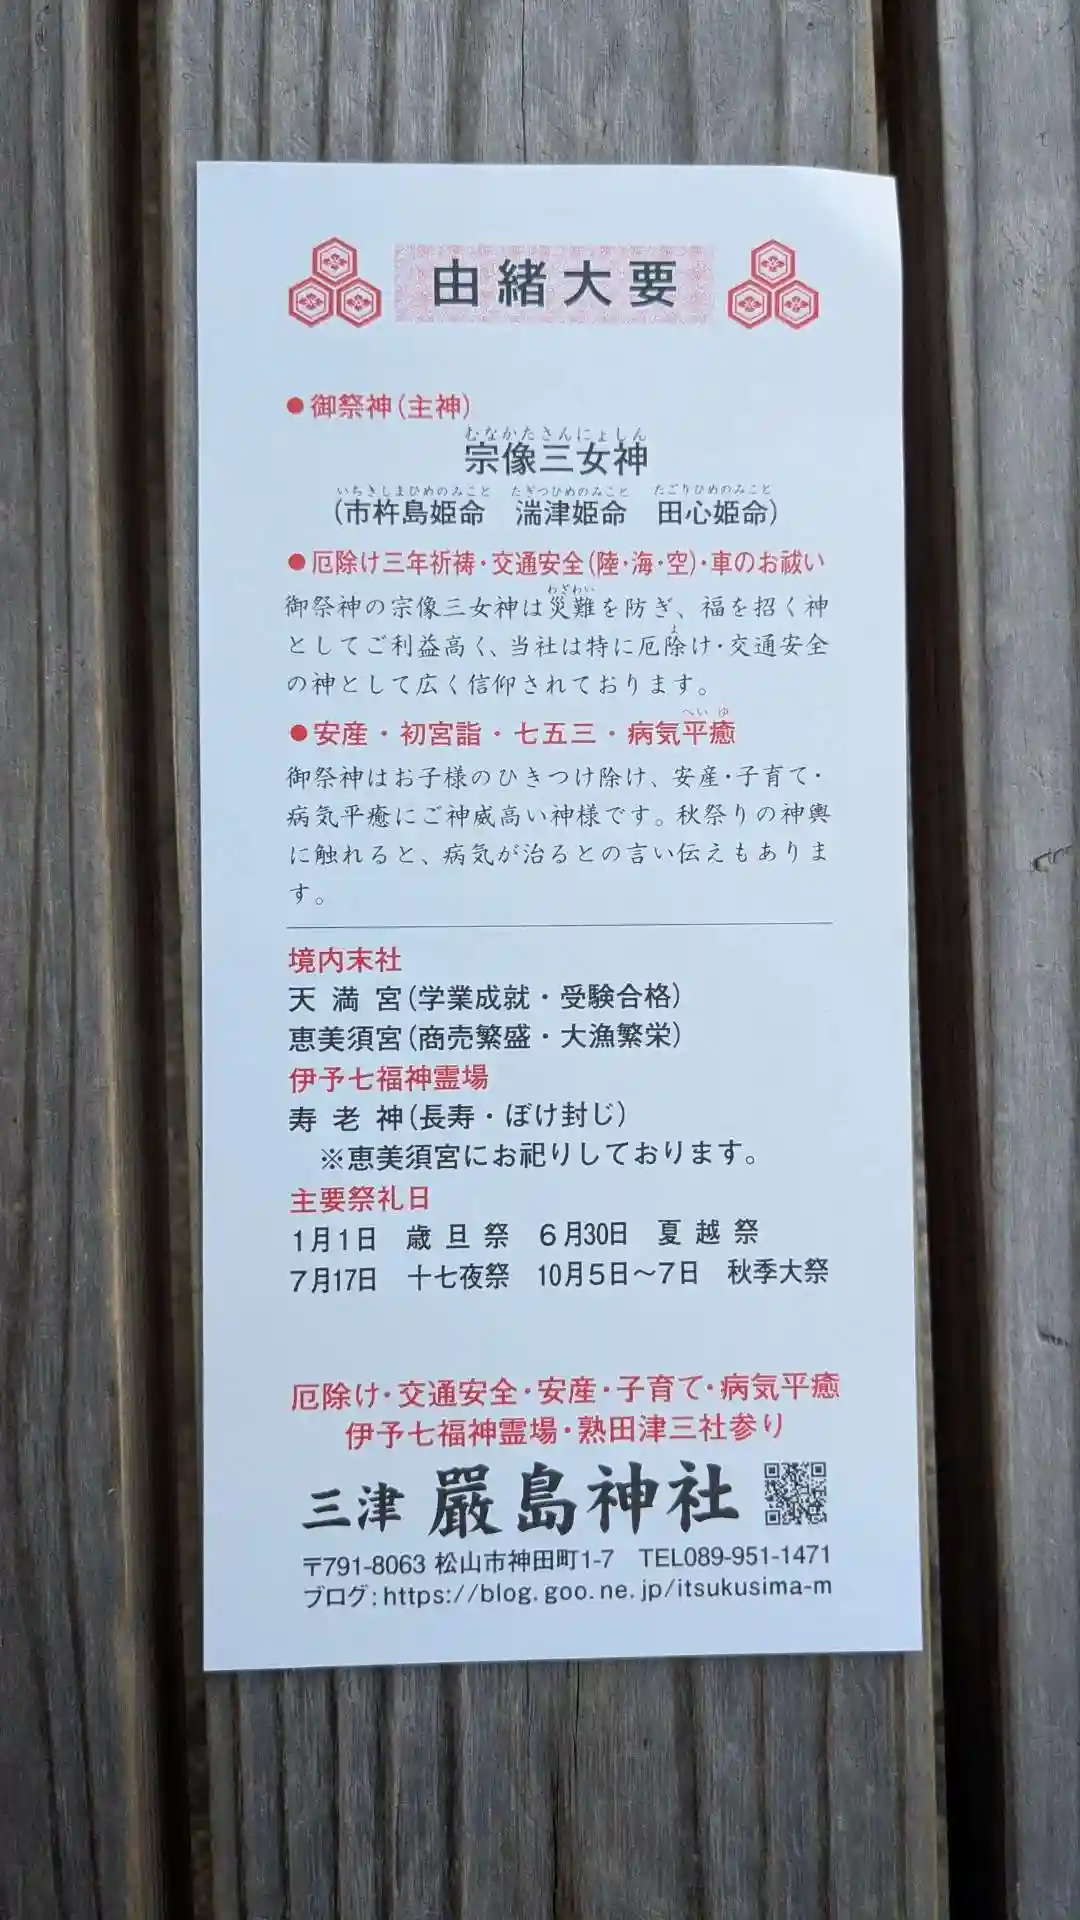 由緒大要
●御祭神(主神)
むなかたさんにょしん
宗像三女神
いちきしまひめのみこと たぎつひめのみこと たごりひめのみこと
(市杵島姫命 湍津姫命 田心姫命)
●厄除け三年祈祷・交通安全(陸・海・空)・車のお祓い
わざわい
御祭神の宗像三女神は災難を防ぎ、福を招く神
よ
としてご利益高く、当社は特に厄除け・交通安全
の神として広く信仰されております。
へいゆ
●安産・初宮詣・七五三・病気平癒
御祭神はお子様のひきつけ除け、安産・子育て・
病気平癒にご神威高い神様です。秋祭りの神輿
に触れると、病気が治るとの言い伝えもありま
す。
境内末社
天満宮(学業成就・受験合格)
恵美須宮(商売繁盛・大漁繁栄)
伊予七福神霊場
寿老神(長寿・ぼけ封じ)
※恵美須宮にお祀りしております。
主要祭礼日
1月1日 歳旦祭 6月30日 夏越祭
7月17日 十七夜祭 10月5日～7日 秋季大祭
厄除け・交通安全・安産・子育て・病気平癒
伊予七福神霊場・熟田津三社参り
三津 嚴島神社
〒791-8063 松山市神田町1-7 TEL089-951-1471
ブログ:https://blog.goo.ne.jp/itsukusima-m